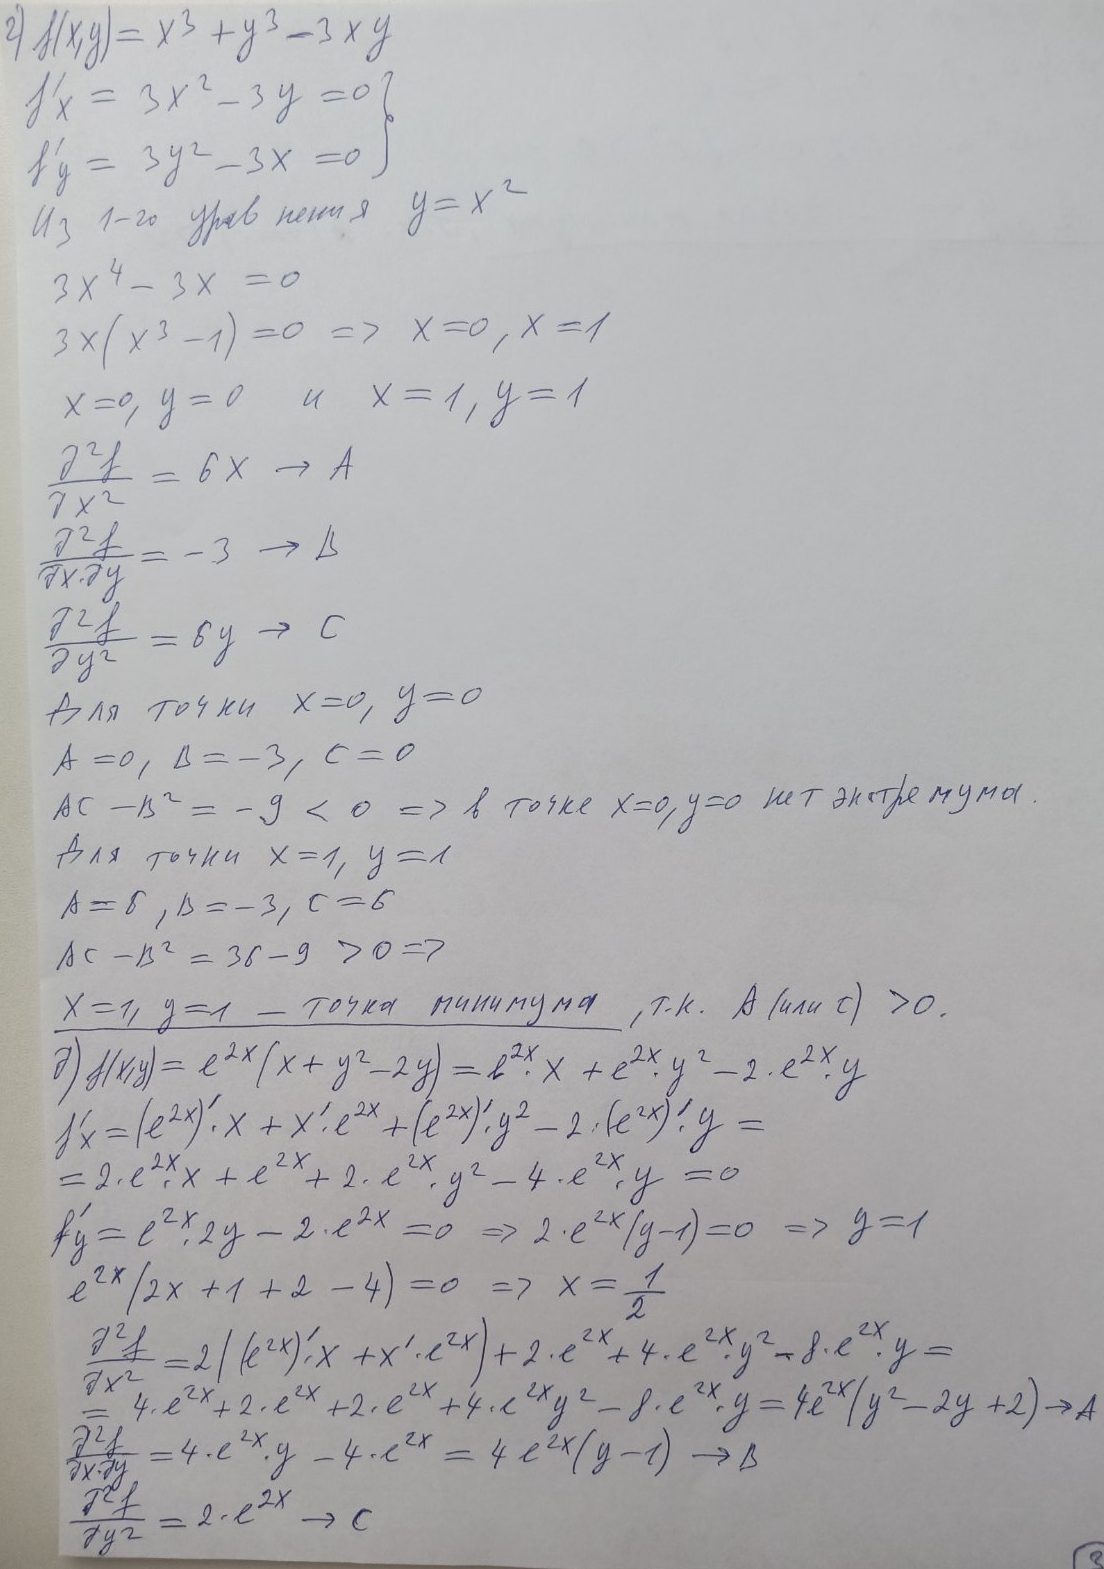 г) f(x,y) = x³ + y³ - 3xy
f'x = 3x² - 3y = 0 }
f'y = 3y² - 3x = 0
Из 1-го уравнения y = x²
3x⁴ - 3x = 0
3x(x³ - 1) = 0 => x=0, x=1
x=0, y=0 и x=1, y=1
∂²f/∂x² = 6x → A
∂²f/∂x·∂y = -3 → B
∂²f/∂y² = 6y → C
Для точки x=0, y=0
A=0, B=-3, C=0
AC - B² = -9 < 0 => в точке x=0, y=0 нет экстремума.
Для точки x=1, y=1
A=6, B=-3, C=6
AC - B² = 36-9 > 0 =>
x=1, y=1 — точка минимума, т.к. A (или C) > 0.
д) f(x,y) = e^{2x}(x + y² - 2y) = e^{2x}·x + e^{2x}·y² - 2·e^{2x}·y
f'x = (e^{2x})'·x + x'·e^{2x} + (e^{2x})'·y² - 2·(e^{2x})'·y =
= 2·e^{2x}·x + e^{2x} + 2·e^{2x}·y² - 4·e^{2x}·y = 0
f'y = e^{2x}·2y - 2·e^{2x} = 0 => 2·e^{2x}(y-1) = 0 => y=1
e^{2x}(2x + 1 + 2 - 4) = 0 => x = 1/2
∂²f/∂x² = 2((e^{2x})'·x + x'·e^{2x}) + 2·e^{2x} + 4·e^{2x}·y² - 8·e^{2x}·y =
= 4·e^{2x} + 2·e^{2x} + 2·e^{2x} + 4·e^{2x}y² - 8·e^{2x}·y = 4e^{2x}(y² - 2y + 2) → A
∂²f/∂x·∂y = 4·e^{2x}·y - 4·e^{2x} = 4e^{2x}(y-1) → B
∂²f/∂y² = 2·e^{2x} → C
3